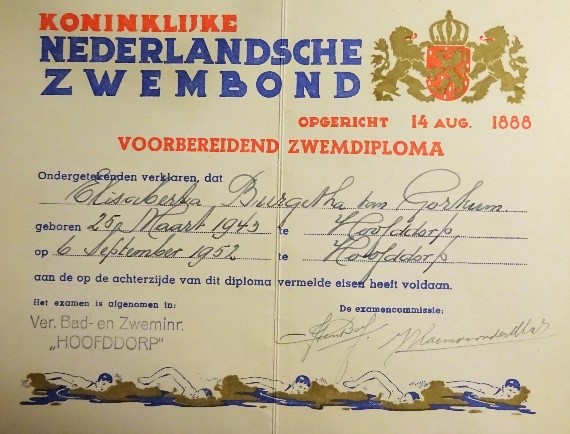 KONINKLIJKE
NEDERLANDSCHE
ZWEMBOND
OPGERICHT 14 AUG. 1888
VOORBEREIDEND ZWEMDIPLOMA
Ondergetekenden verklaren, dat
van Gorkum
geboren 25 Maart 1943 te Hoofddorp
op 6 September 1952 te Hoofddorp
aan de op de achterzijde van dit diploma vermelde eisen heeft voldaan.
Het examen is afgenomen in:
De examencommissie:
Ver. Bad- en Zweminr.
„HOOFDDORP"